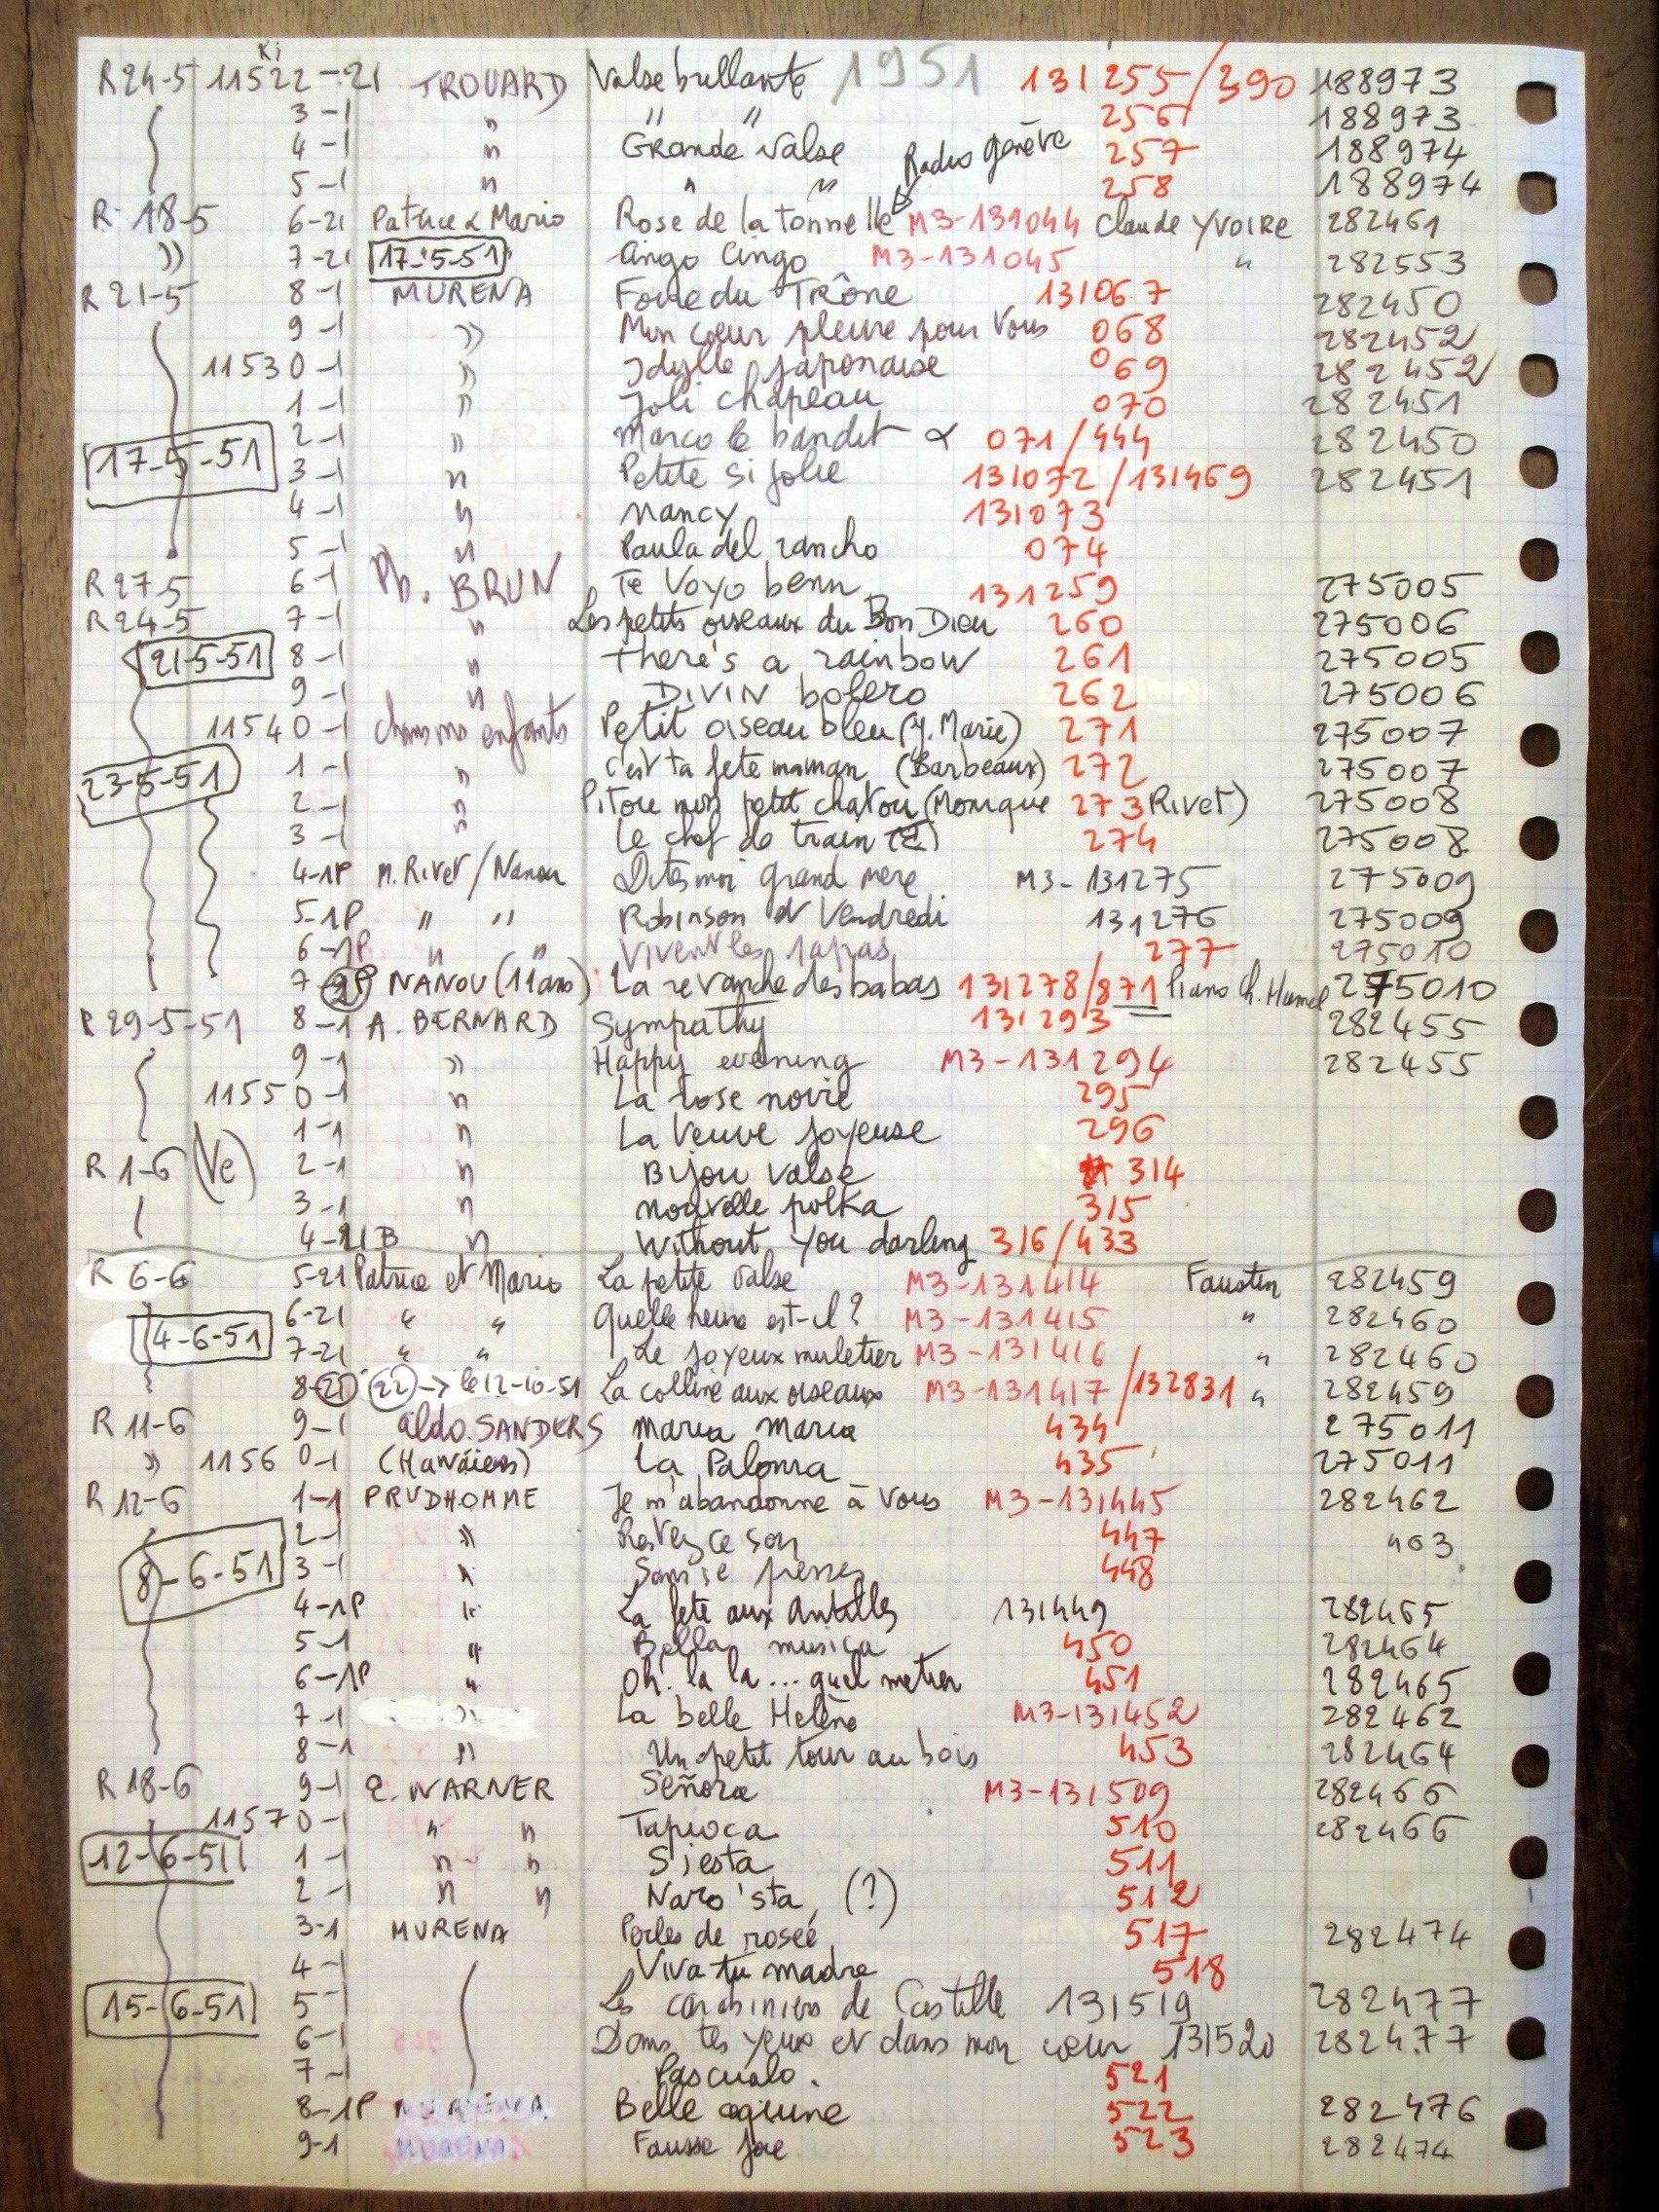 Ki
R 24-5 11522-21 TROUARD Valse brillante 1951 131255/390 188973
3-1 " " " 256 188973
4-1 " Grande Valse 257 188974
Radio Genève
5-1 " " " 258 188974
R 18-5 6-21 Patrice & Mario Rose de la tonnelle M3-131044 Claude YVOIRE 282461
" 7-21 17-5-51 Cingo Cingo M3-131045 " 282553
R 21-5 8-1 MURENA Foire du Trône 131067 282450
9-1 " Mon cœur pleure pour Vous 068 282452
11530-1 " Idylle japonaise 069 282452
1-1 " Joli chapeau 070 282451
2-1 " Marco le bandit & 071/444 282450
17-5-51 3-1 " Petite si jolie 131072/131469 282451
4-1 " Nancy 131073
5-1 " Paula del rancho 074
R 27-5 6-1 Ph. BRUN Te Voyo benn 131259 275005
R 24-5 7-1 " Les petits oiseaux du Bon Dieu 260 275006
21-5-51 8-1 " There's a rainbow 261 275005
9-1 " DIVIN bolero 262 275006
11540-1 chansons enfants Petit oiseau bleu (J. Marie) 271 275007
23-5-51 1-1 " C'est ta fete maman (Barbeaux) 272 275007
2-1 " Pitou mon petit chatou (Monique 273 Rivet) 275008
3-1 " Le chef de train 274 275008
4-1P M. Rivet/Nanou Dites moi grand mere M3-131275 275009
5-1P " " Robinson et Vendredi 131276 275009
6-1P " " Vivent les papas 277 275010
7-2P NANOU (11 ans) La revanche des babas 131278/871 Piano Ch. Hamel 275010
R 29-5-51 8-1 A. BERNARD Sympathy 131293 282455
9-1 " Happy evening M3-131294 282455
11550-1 " La rose noire 295
1-1 " La Veuve Joyeuse 296
R 1-6 (Ve) 2-1 " Bijou Valse 314
3-1 " nouvelle polka 315
4-21B " Without you darling 316/433
R 6-6 5-21 Patrice et Mario La petite valse M3-131414 Faustin 282459
6-21 " " Quelle heure est-il? M3-131415 " 282460
4-6-51 7-21 " " Le joyeux muletier M3-131416 " 282460
8-21 22 -> le 12-10-51 La colline aux oiseaux M3-131417/132831 " 282459
R 11-6 9-1 Aldo. SANDERS Maria Maria 434 275011
" 11560-1 (Hawaïens) La Paloma 435 275011
R 12-6 1-1 PRUDHOMME Je m'abandonne à Vous M3-131445 282462
2-1 " Restez ce soir 447 403
8-6-51 3-1 " 448
4-1P " La fete aux Antilles 131449 282465
5-1 " Bella musica 450 282464
6-1P " Oh! la la... quel metier 451 282465
7-1 " La belle Helène M3-131452 282462
8-1 " Un petit tour au bois 453 282464
R 18-6 9-1 E. WARNER Señora M3-131509 282466
11570-1 " " Tapioca 510 282466
12-6-51 1-1 " " Siesta 511
2-1 " " Naro'sta (?) 512
3-1 MURENA Perles de roseé 517 282474
4-1 Viva tu madre 518
15-6-51 5-1 Les carabiniers de Castille 131519 282477
6-1 Dans tes yeux et dans mon cœur 131520 282477
7-1 Pascualo. 521
8-1P MURENA Belle 522 282476
9-1 MURENA Fausse joie 523 282474